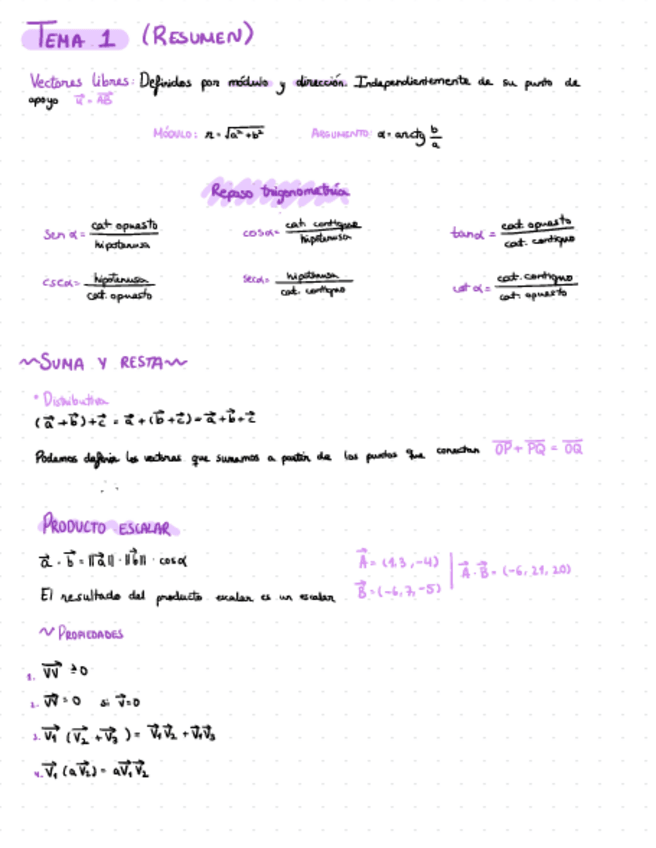 TEMA 1 (RESUMEN)
Vectores libres: Definidos por módulo y dirección. Independientemente de su punto de
apoyo u⃗ = AB⃗
MÓDULO: r = √(a² + b²) ARGUMENTO: α = arctg b/a
Repaso trigonometría
sen α = cat opuesto / hipotenusa cos α = cat. contiguo / hipotenusa tan α = cat. opuesto / cat. contiguo
csc α = hipotenusa / cat. opuesto sec α = hipotenusa / cat. contiguo cot α = cat. contiguo / cat. opuesto
~SUMA Y RESTA~
* Distributiva
(a⃗ + b⃗) + c⃗ = a⃗ + (b⃗ + c⃗) = a⃗ + b⃗ + c⃗
Podemos definir los vectores que sumamos a partir de los puntos que conectan OP + PQ = OQ
PRODUCTO ESCALAR
a⃗ · b⃗ = ||a⃗|| · ||b⃗|| · cos α
A⃗ = (1,3,-4) | A⃗·B⃗ = (-6, 21, 20)
B⃗ = (-6,7,-5)
El resultado del producto escalar es un escalar
~ PROPIEDADES
1. V⃗V⃗ ≥ 0
2. V⃗V⃗ = 0 si V⃗=0
3. V⃗₁ (V⃗₂ + V⃗₃) = V⃗₁V⃗₂ + V⃗₁V⃗₃
4. V⃗₁ (a V⃗₂) = a V⃗₁V⃗₂